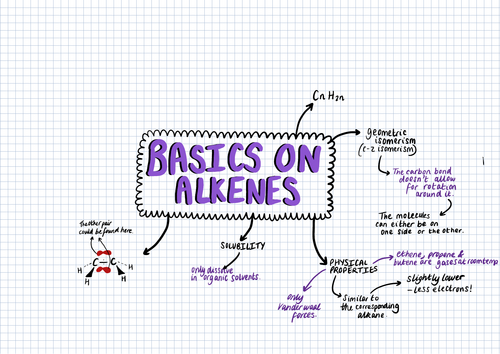 CnH2n
BASICS ON
ALKENES
geometric
isomerism
(c-z isomerism)
The carbon bond
doesn't allow
for rotation
around it.
The molecules
can either be on
one side or the other.
The other pair
could be found here
H
C
C
H
H
H
SOLUBILITY
only dissolve
in organic solvents.
PHYSICAL
PROPERTIES
ethene, propene &
butene are gases at room temp
slightly lower
- less electrons!
Similar to
the corresponding
alkane.
only
Van der Waal
forces.